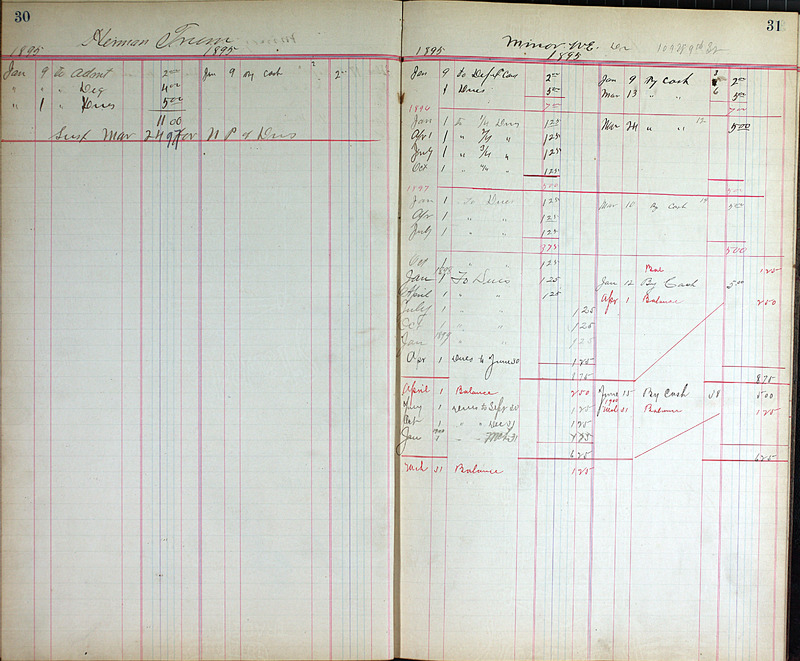 30
Herman
1895 1895
Jan 9 to Admt 2 00 Jan 9 By Cash 2 2 00
" " " Deg 4 00
" 1 " Dues 5 00
11 00
Susp Mar 24 97 for N P of Dues
31
Minor W.E. Dr
1895 1895
Jan 9 To Card 2 00 Jan 9 By Cash 2 00
1 Dues 5 00 Mar 13 " " 6 5 00
1896 7 00 7 00
Jan 1 To 1/4 Dues 1 25 Mar 24 " " 5 00
Apr 1 " 2/4 " 1 25
July 1 " 3/4 " 1 25
Oct 1 " 4/4 " 1 25
1897 5 00 5 00
Jan 1 To Dues 1 25 Mar 10 By Cash 5 00
Apr 1 " " 1 25
July 1 " " 1 25
3 75 5 00
Oct 1 " " 1 25 Bal 1 25
1898
Jan 1 To Dues 1 25 Jan 12 By Cash 5 00
April 1 " " 1 25 Apr 1 Balance 2 50
July 1 " " 1 25
Oct 1 " " 1 25
1899
Jan 1 " " 1 25
Apr 1 Dues to June 30 1 25
8 75
April 1 Balance 2 50 June 15 By Cash 5 00
July 1 Dues to Sept 30 1 25 1900 Mch 31 Balance 1 25
Oct 1 " " Dec 31 1 25
1900
Jan 1 " " Mch 31
6 25 6 25
Mch 31 Balance 1 25